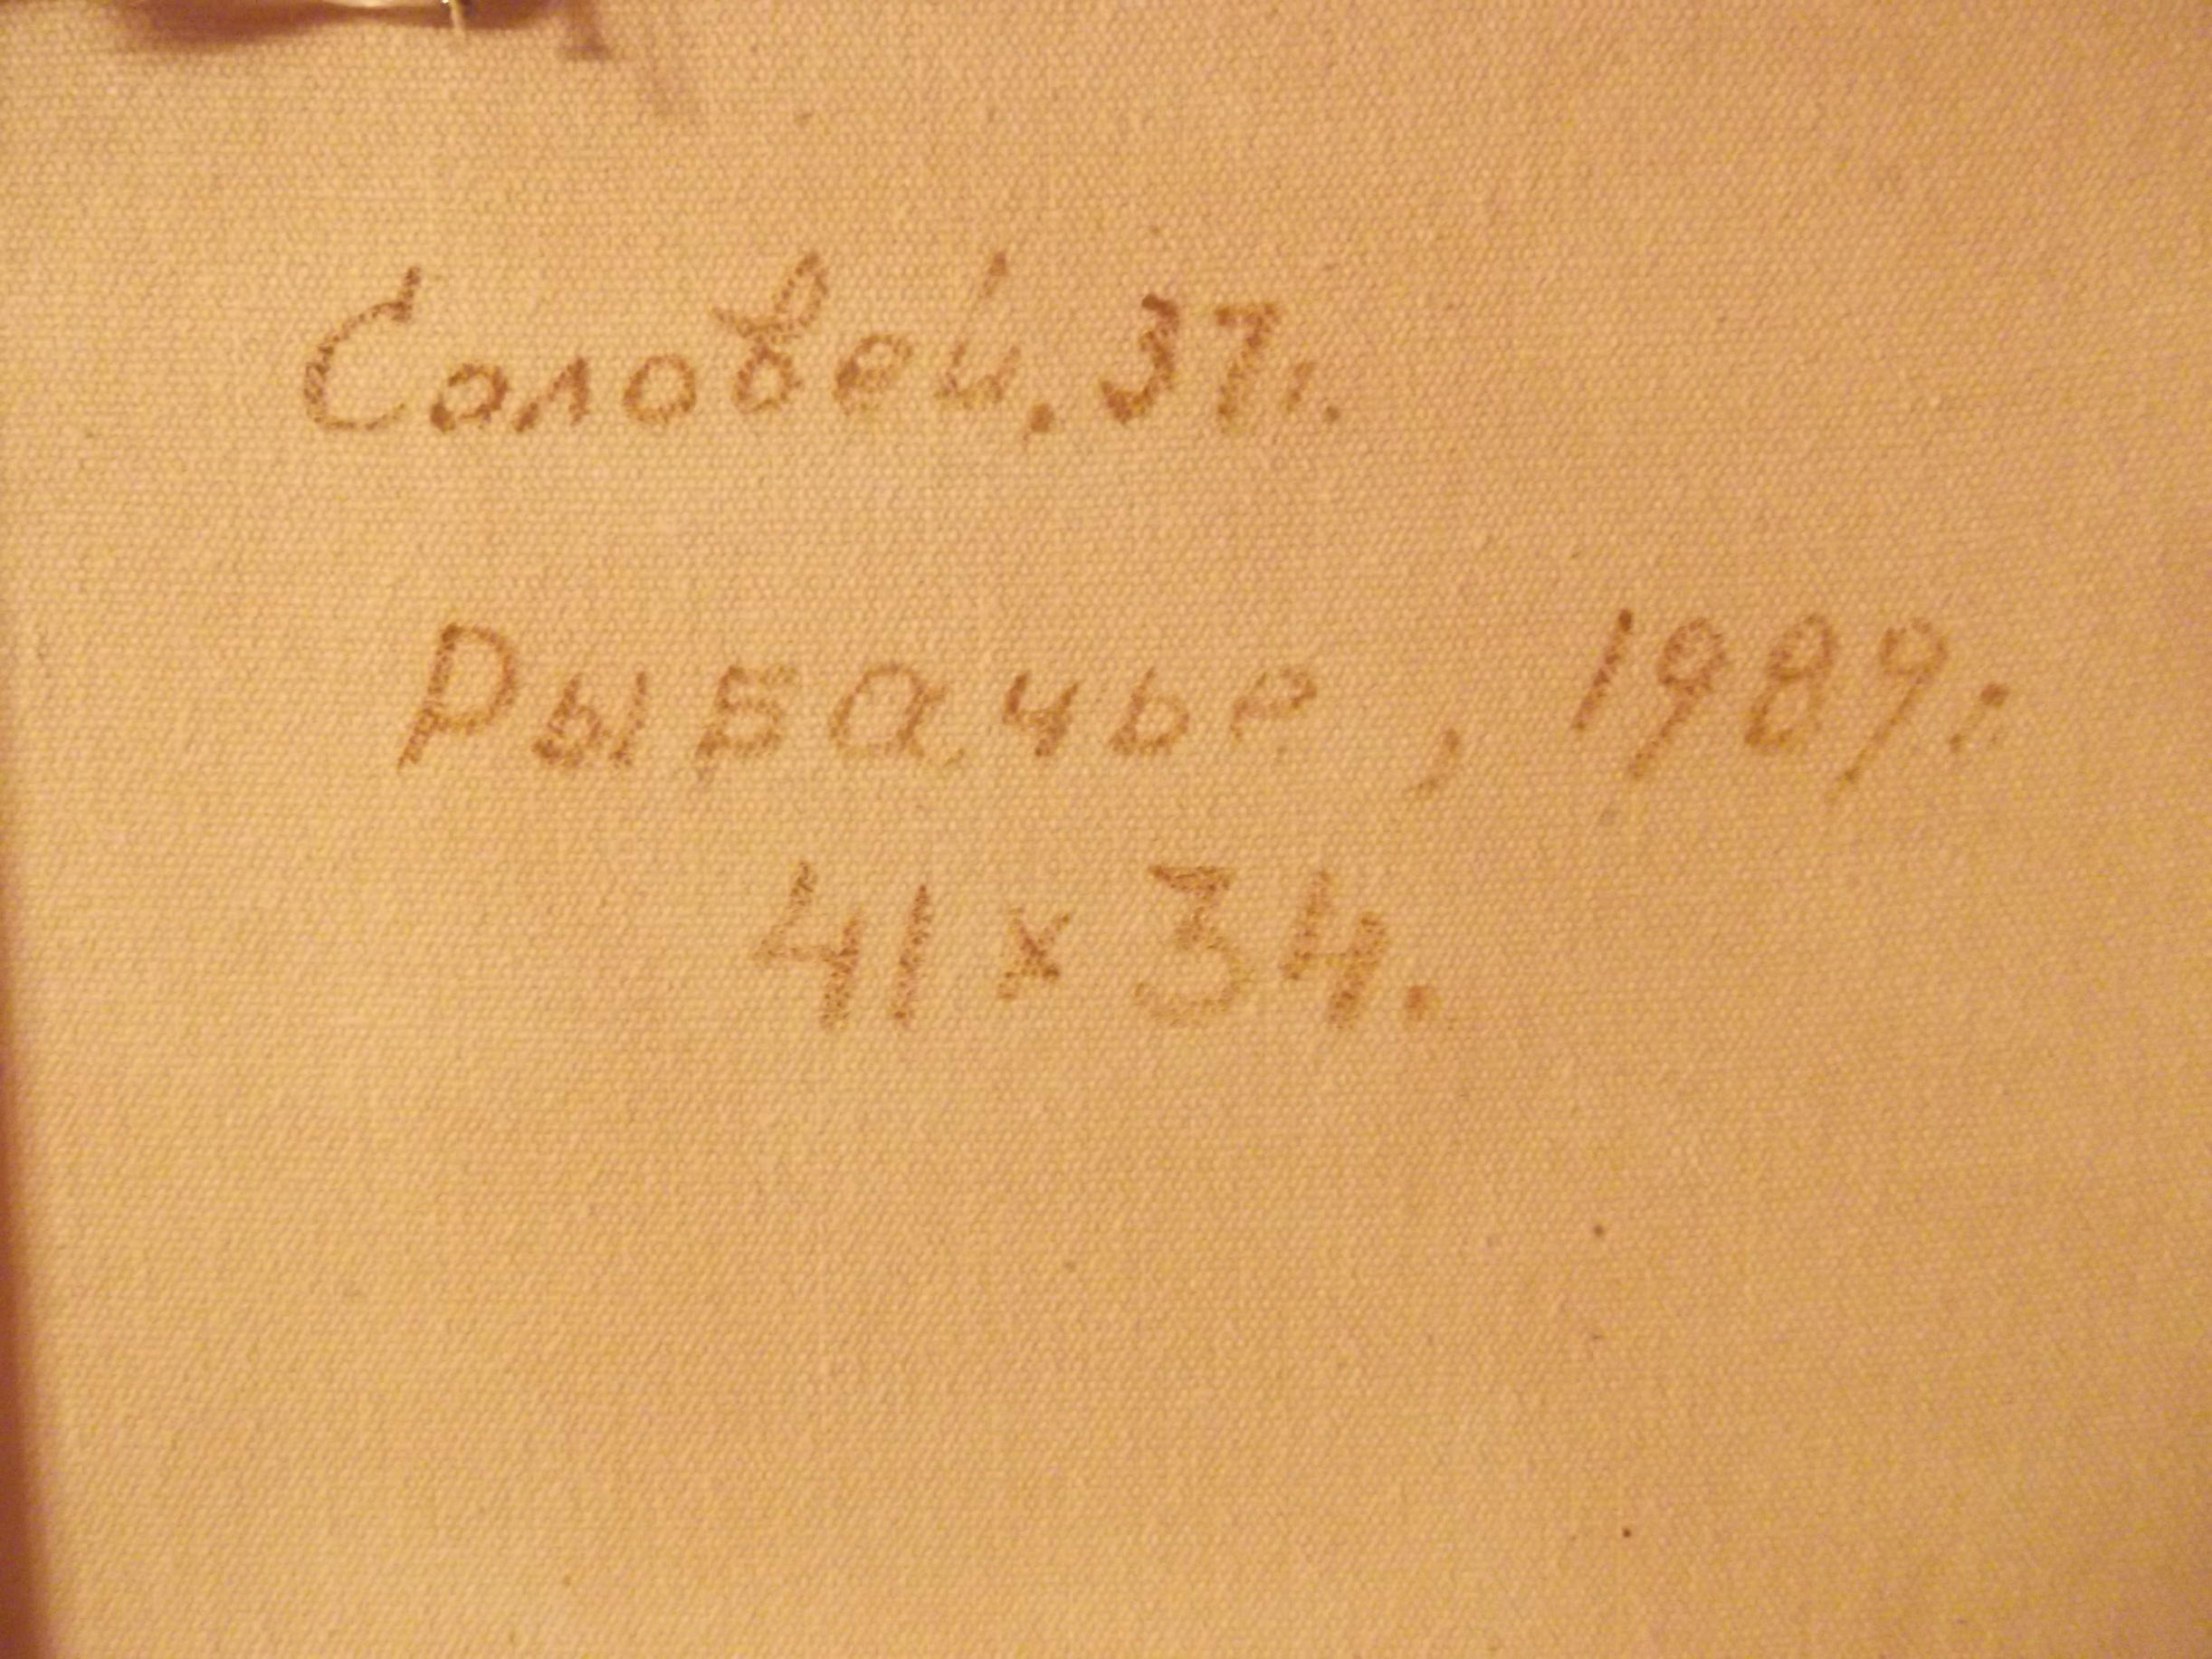 Соловей, 37г.
Рыбачье, 1989г.
41 x 34.